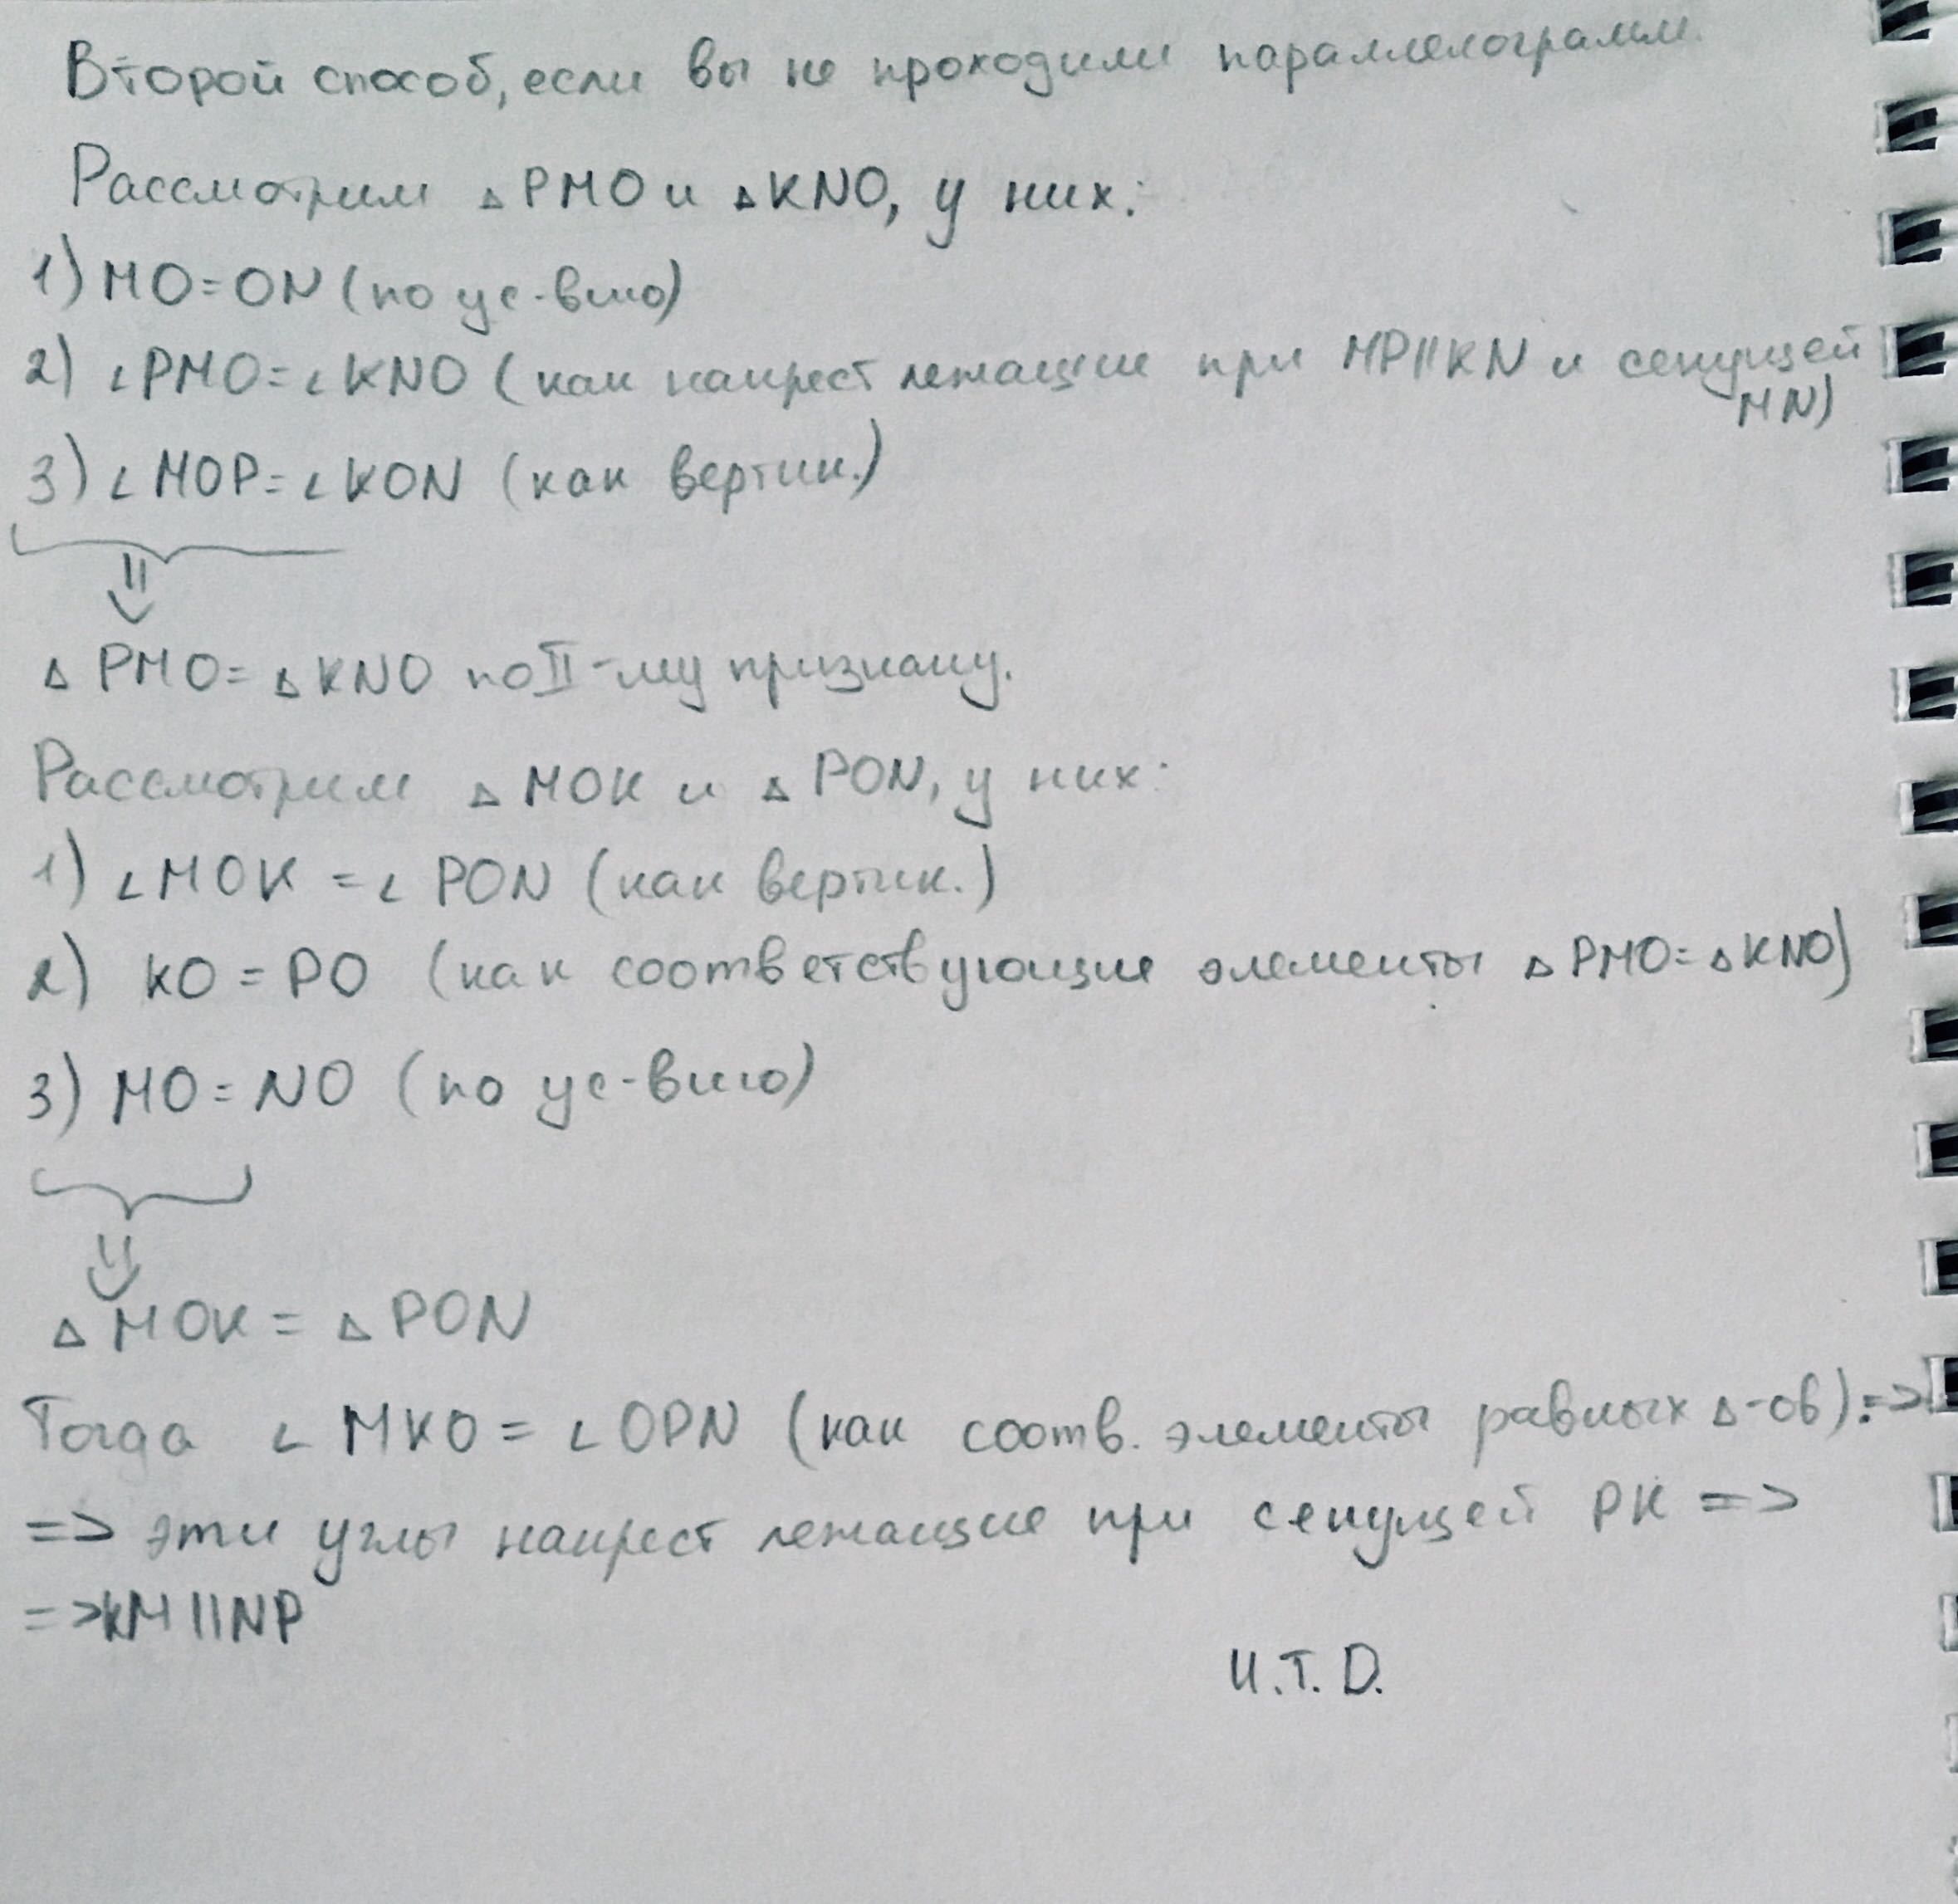 Второй способ, если вы не проходили параллелограмм.
Рассмотрим △PMO и △KNO, у них:
1) MO=ON (по ус-вию)
2) ∠PMO=∠KNO (как накрест лежащие при MP||KN и секущей
MN)
3) ∠MOP=∠KON (как вертик.)
⇓
△PMO=△KNO по II-му признаку.
Рассмотрим △MOK и △PON, у них:
1) ∠MOK = ∠PON (как вертик.)
2) KO = PO (как соответствующие элементы △PMO=△KNO)
3) MO=NO (по ус-вию)
⇓
△MOK = △PON
Тогда ∠MKO = ∠OPN (как соотв. элементы равных △-ов). =>
=> эти углы накрест лежащие при секущей PK =>
=> KM||NP
Ч.Т.D.